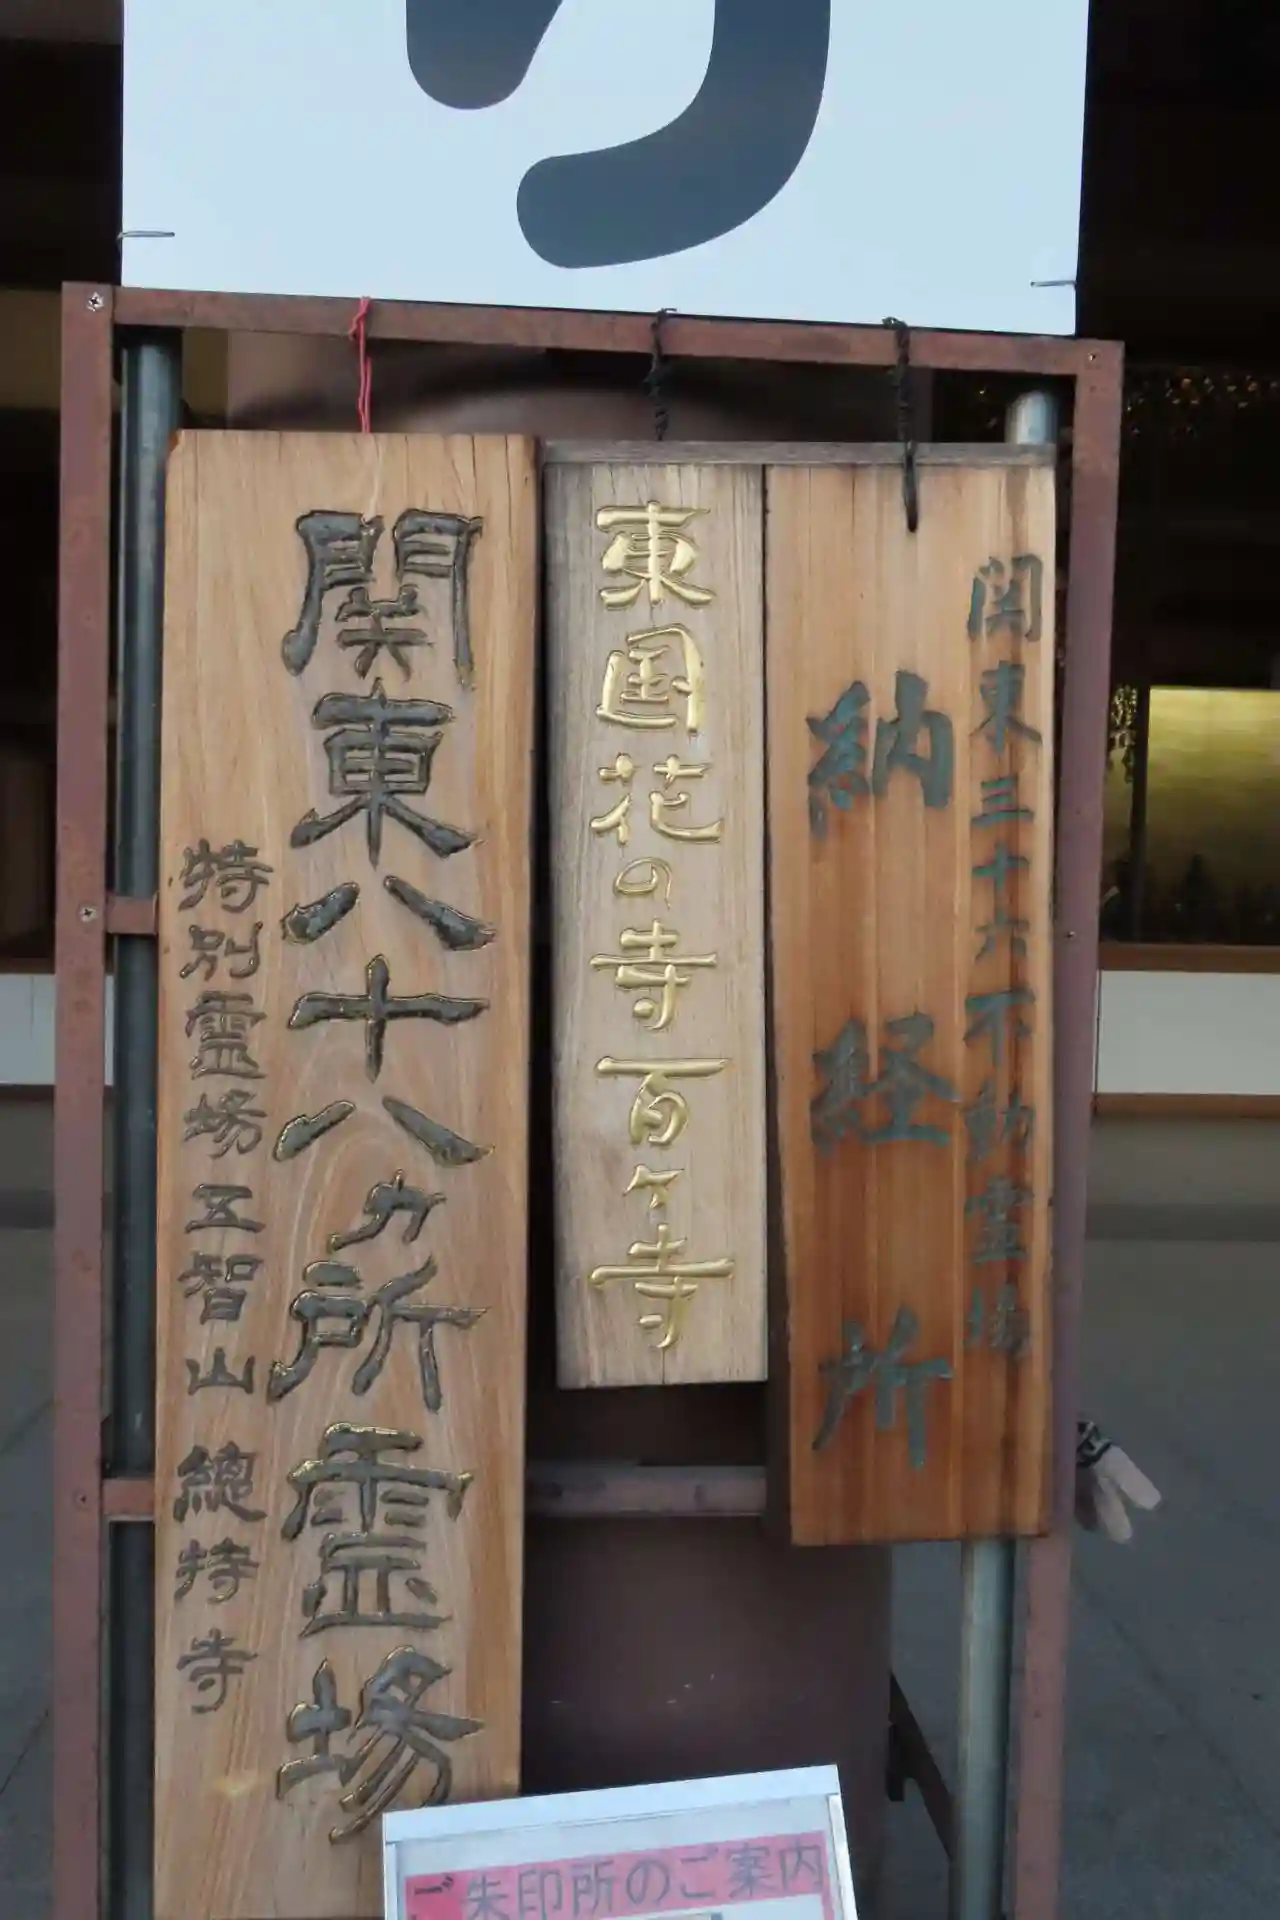 関東三十六不動霊場
納経所
東国花の寺百ヶ寺
関東八十八ヵ所霊場
特別霊場五智山 總持寺
ご朱印所のご案内